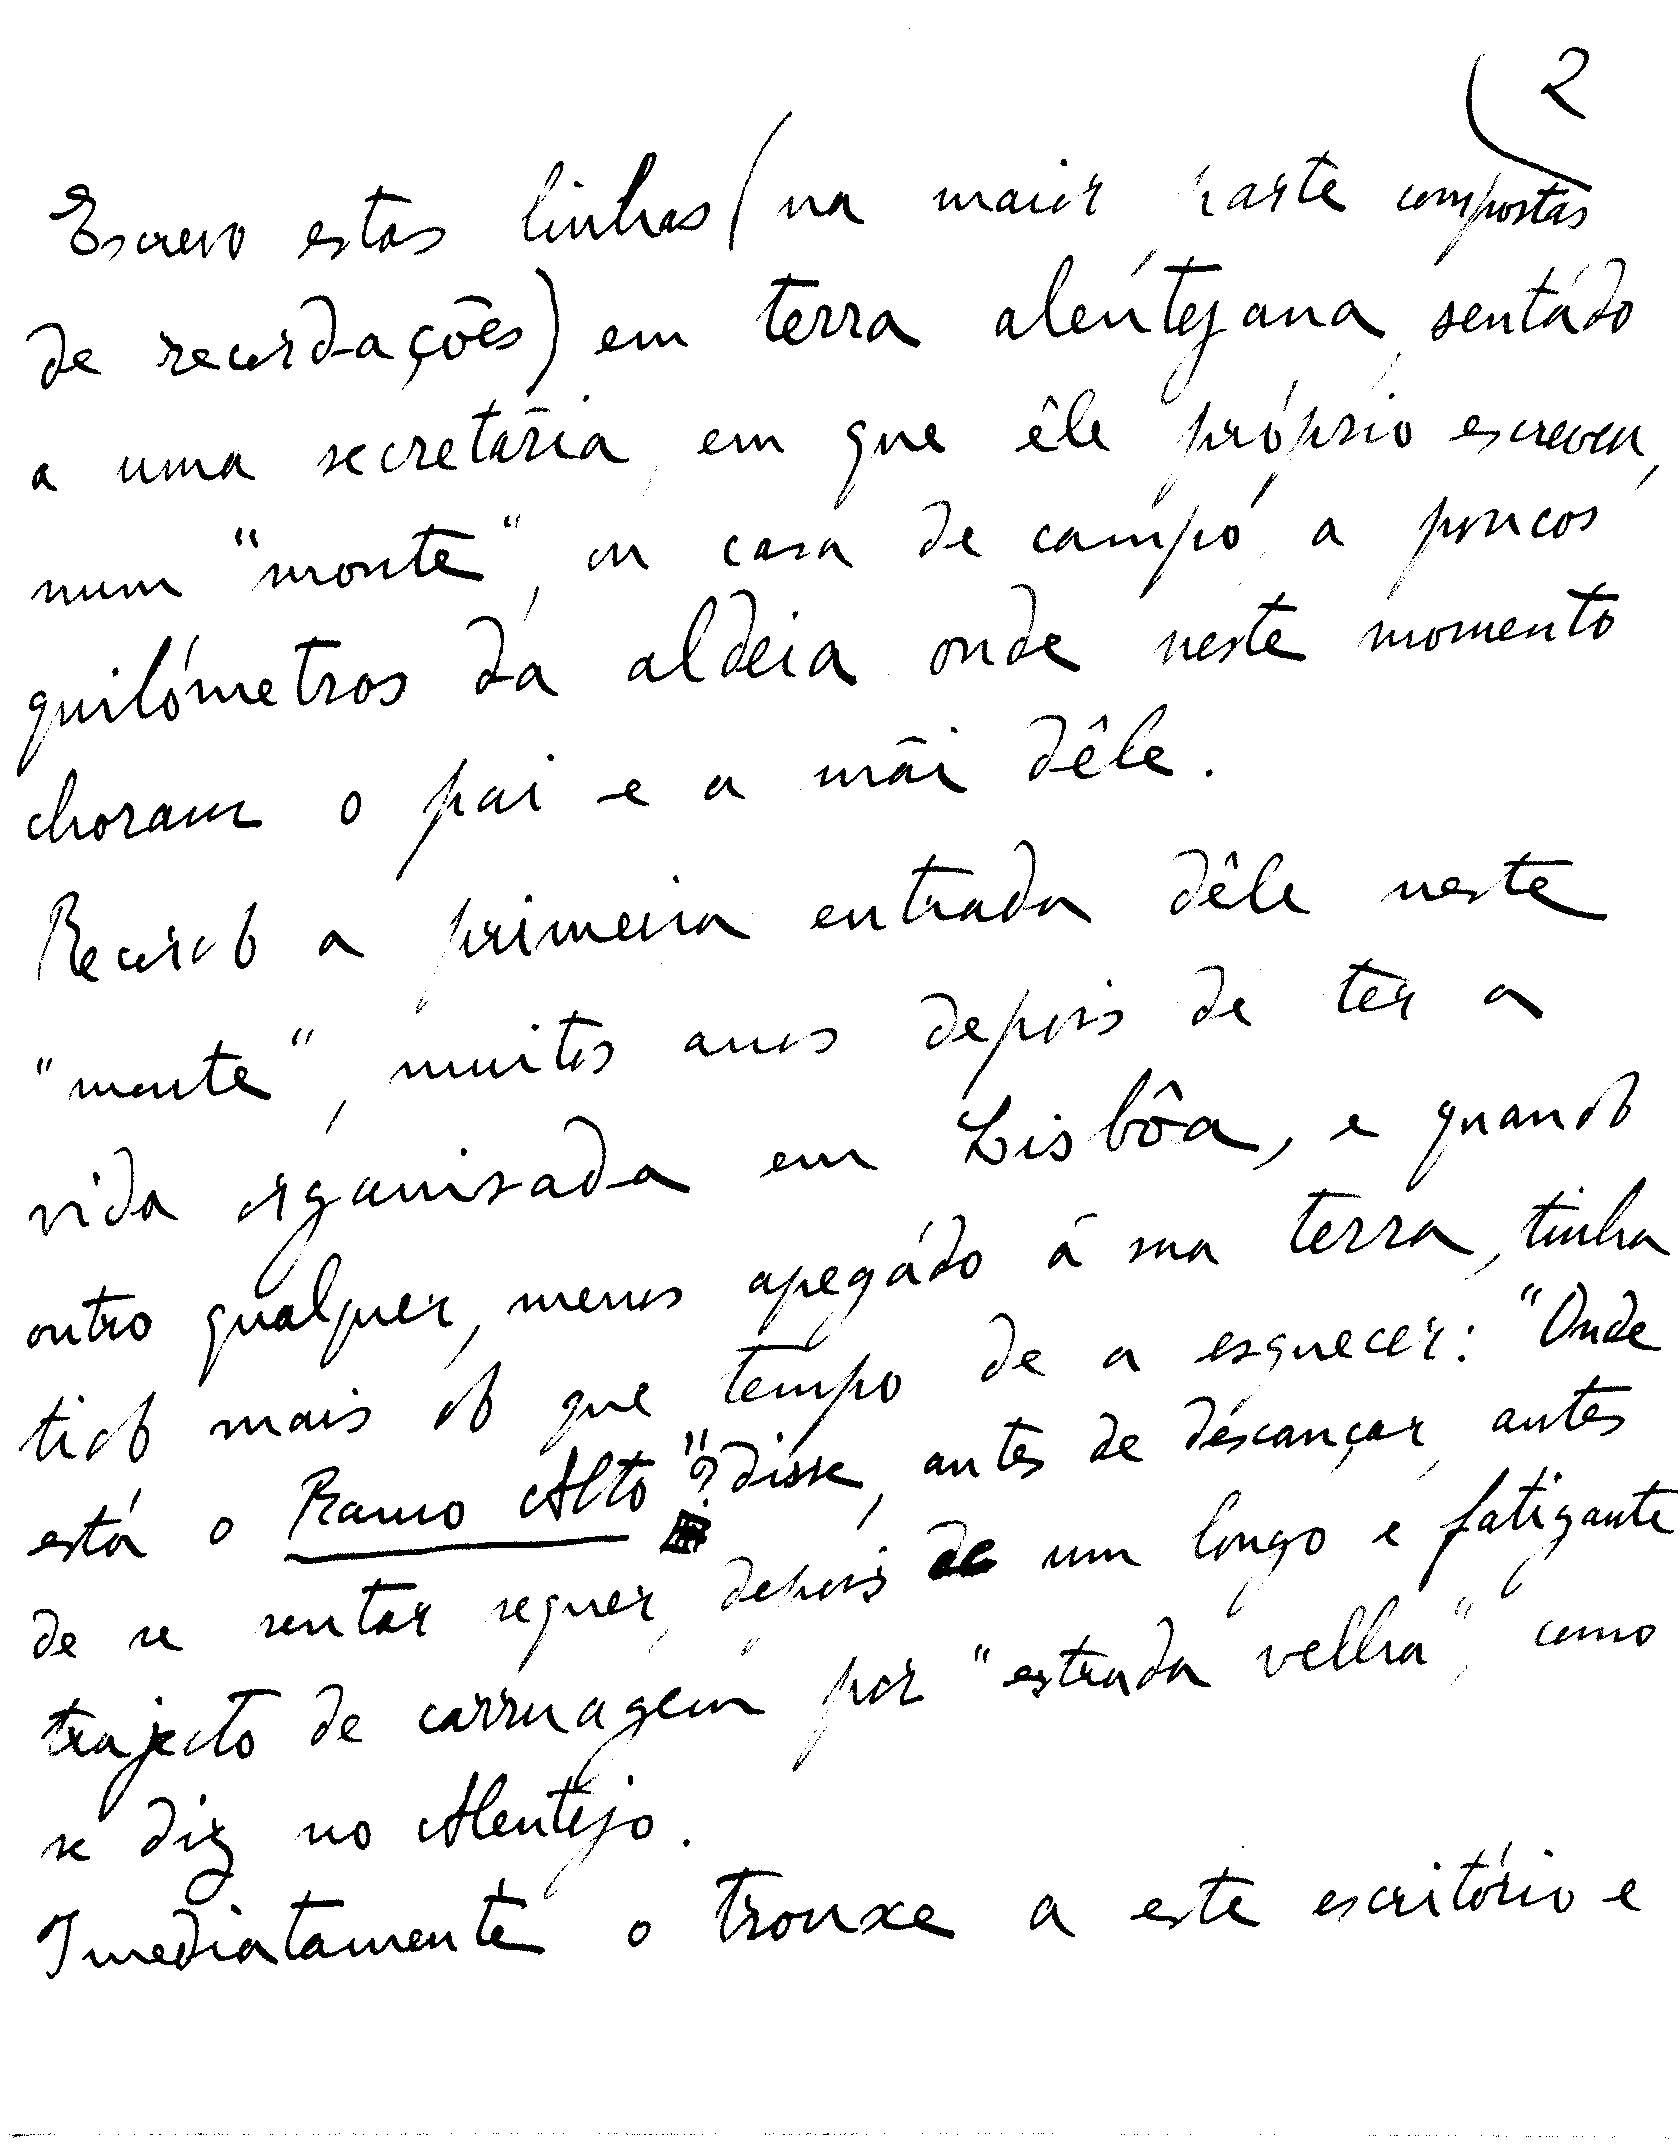 2
Escrevo estas linhas (na maior parte compostas
de recordações) em terra alentejana, sentado
a uma secretária, em que êle próprio escreveu,
num "monte", ou casa de campo, a poucos
quilómetros da aldeia onde neste momento
choram o pai e a mãi dêle.
Recordo a primeira entrada dêle neste
"monte", muitos anos depois de ter a
vida organisada em Lisbôa, e quando
outro qualquer, menos apegado à sua terra, tinha
tido mais do que tempo de a esquecer: "Onde
está o Ramo Alto"? disse, antes de descançar, antes
de se sentar sequer, depois de um longo e fatigante
trajecto de carruagem por "estrada velha", como
se diz no Alentejo.
Imediatamente o trouxe a este escritório e